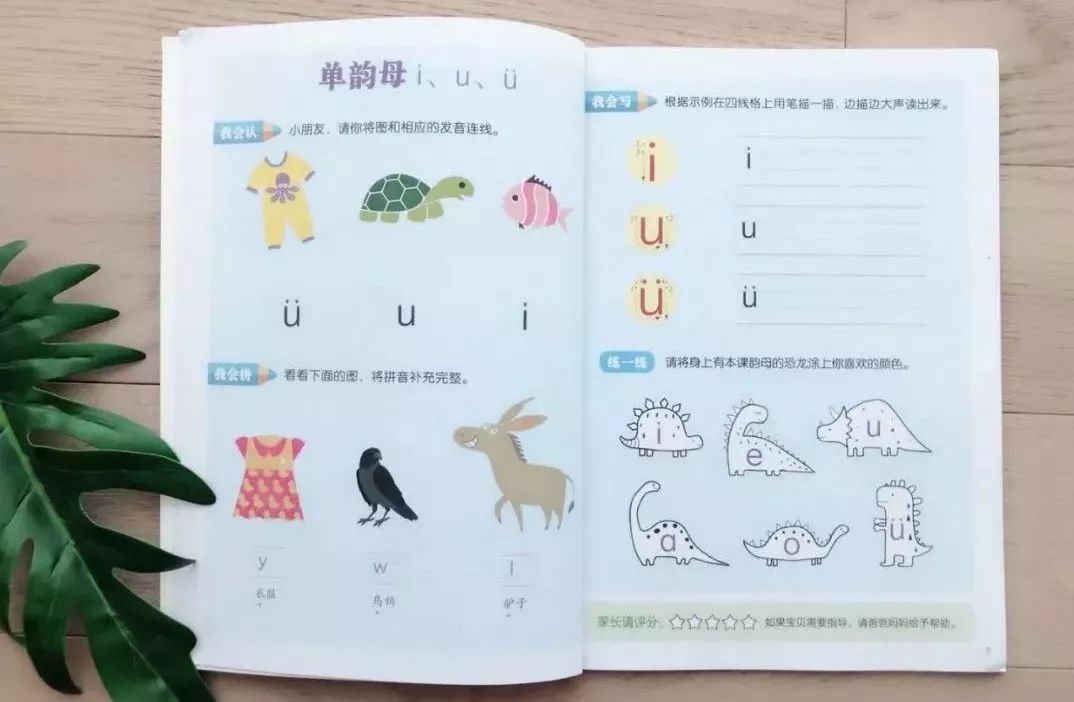 单韵母 i、u、ü
我会认 小朋友，请你将图和相应的发音连线。
ü u i
我会拼 看看下面的图，将拼音补充完整。
y w l
衣服 乌鸦 驴子
我会写 根据示例在四线格上用笔描一描，边描边大声读出来。
i i
u u
ü ü
练一练 请将身上有本课韵母的恐龙涂上你喜欢的颜色。
i e u
a o ü
家长请评分： 如果宝贝需要指导，请爸爸妈妈给予帮助。